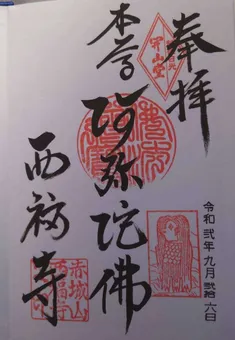 奉拝
令和弐年九月弐拾六日
本尊
阿弥陀佛
西福寺
赤城山
西福寺